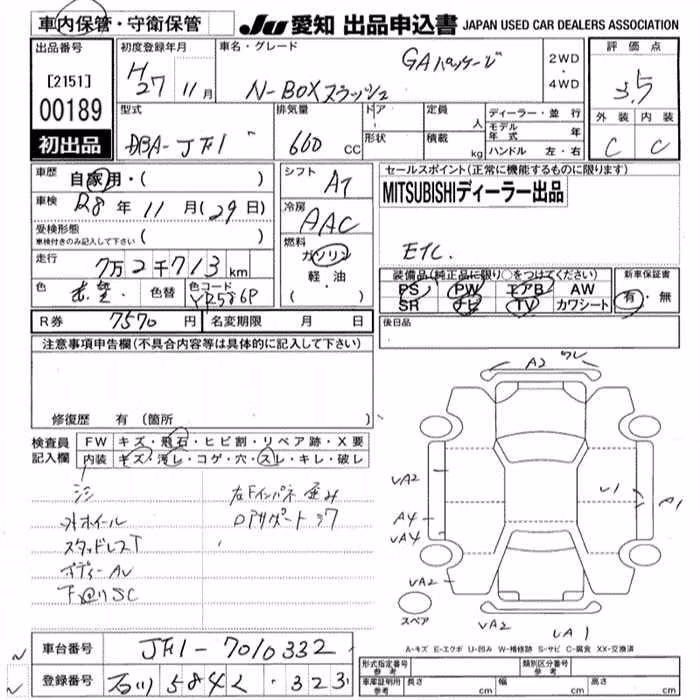 車内保管・守衛保管 JU 愛知 出品申込書 JAPAN USED CAR DEALERS ASSOCIATION
出品番号 初度登録年月 車名・グレード 評価点
[2151] H27 11月 N-BOXスラッシュ GAパッケージ 2WD・4WD 3.5
00189 型式 排気量 ドア 定員 人 ディーラー・並行 外装 内装
初出品 DBA-JF1 660 CC 形状 積載 kg モデル年式 年 C C
ハンドル 左・右
車歴 自家用・( ) シフト AT セールスポイント(正常に機能するものに限ります)
車検 R8年11月(29日) 冷房 AAC MITSUBISHIディーラー出品
受検形態 車検付きのみ記入して下さい ( ) 燃料 ガソリン ETC.
走行 7万2千713km 軽・油 装備品(純正品に限り○をつけてください) 新車保証書
色 色替 色コード YR586P ( ) PS PW エアB AW 有・無
SR ナビ TV カワシート
R券 7570円 名変期限 月 日 後日品
注意事項申告欄(不具合内容等は具体的に記入して下さい)
A2
修復歴 有 (箇所 )
検査員記入欄 FW キズ・飛石・ヒビ割・リペア跡・X要
内装 キズ・汚レ・コゲ・穴・スレ・キレ・破レ
シミ 左Fインパネ歪み
外ホイール
スタッドレスT
ボディーAU
SC
UA2
A4
UA4
UA2
U1 A1
スペア
UA2 UA1
A-キズ E-エクボ U-凹み W-補修跡 S-サビ C-腐食 XX-交換済
車台番号 JF1-7010332
形式指定番号 参考 類別区分番号 参考
登録番号 石川 584 323
車庫証明用 参考 長さ cm 幅 cm 高さ cm